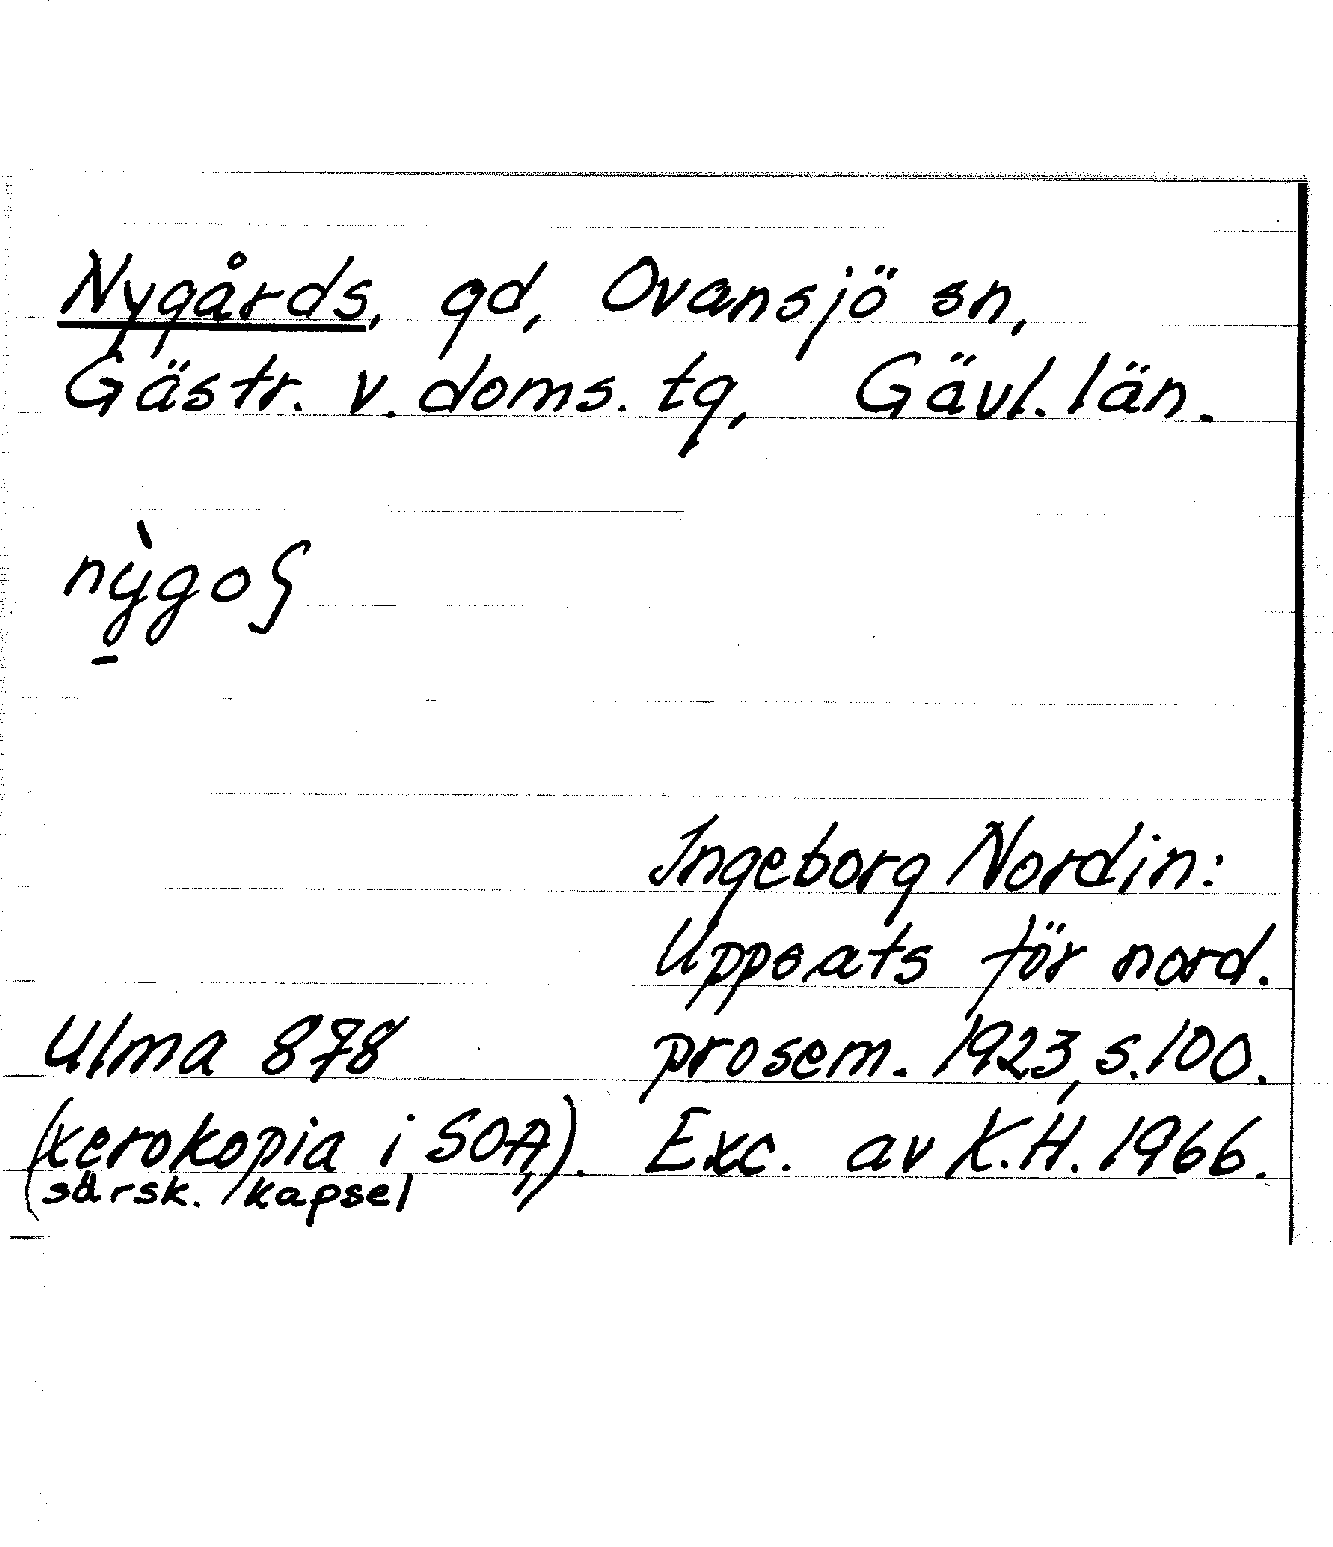 Nygårds, gd, Ovansjö sn,
Gästr. v. doms. tg, Gävl. län.
nỳ̠goʃ
Ingeborg Nordin:
Uppsats för nord.
prosem. 1923, s. 100.
Exc. av K.H. 1966.
Ulma 878
(xerokopia i SOA,).
särsk. kapsel